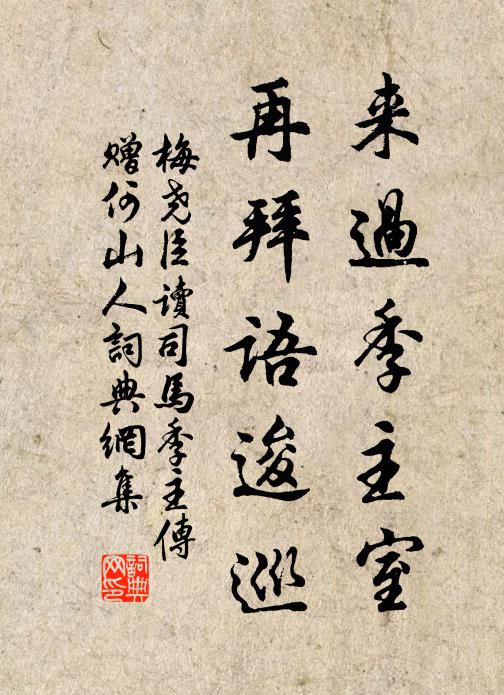 来過季主室
再拜語逡巡
梅尧臣讀司馬季主傳
贈何山人詞典網集
詞典
网印